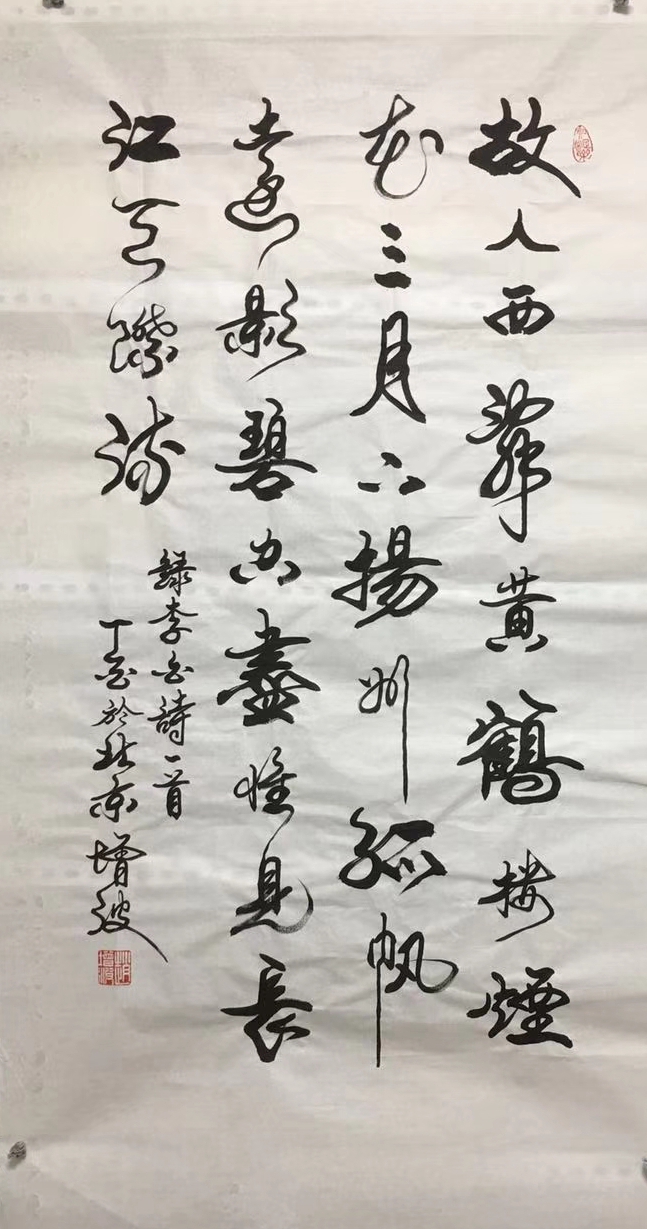 故人西辤黄鶴楼煙
花三月下揚州孤帆
遠影碧空盡惟見長
江天際流
録李白詩一首
丁酉於北京增波